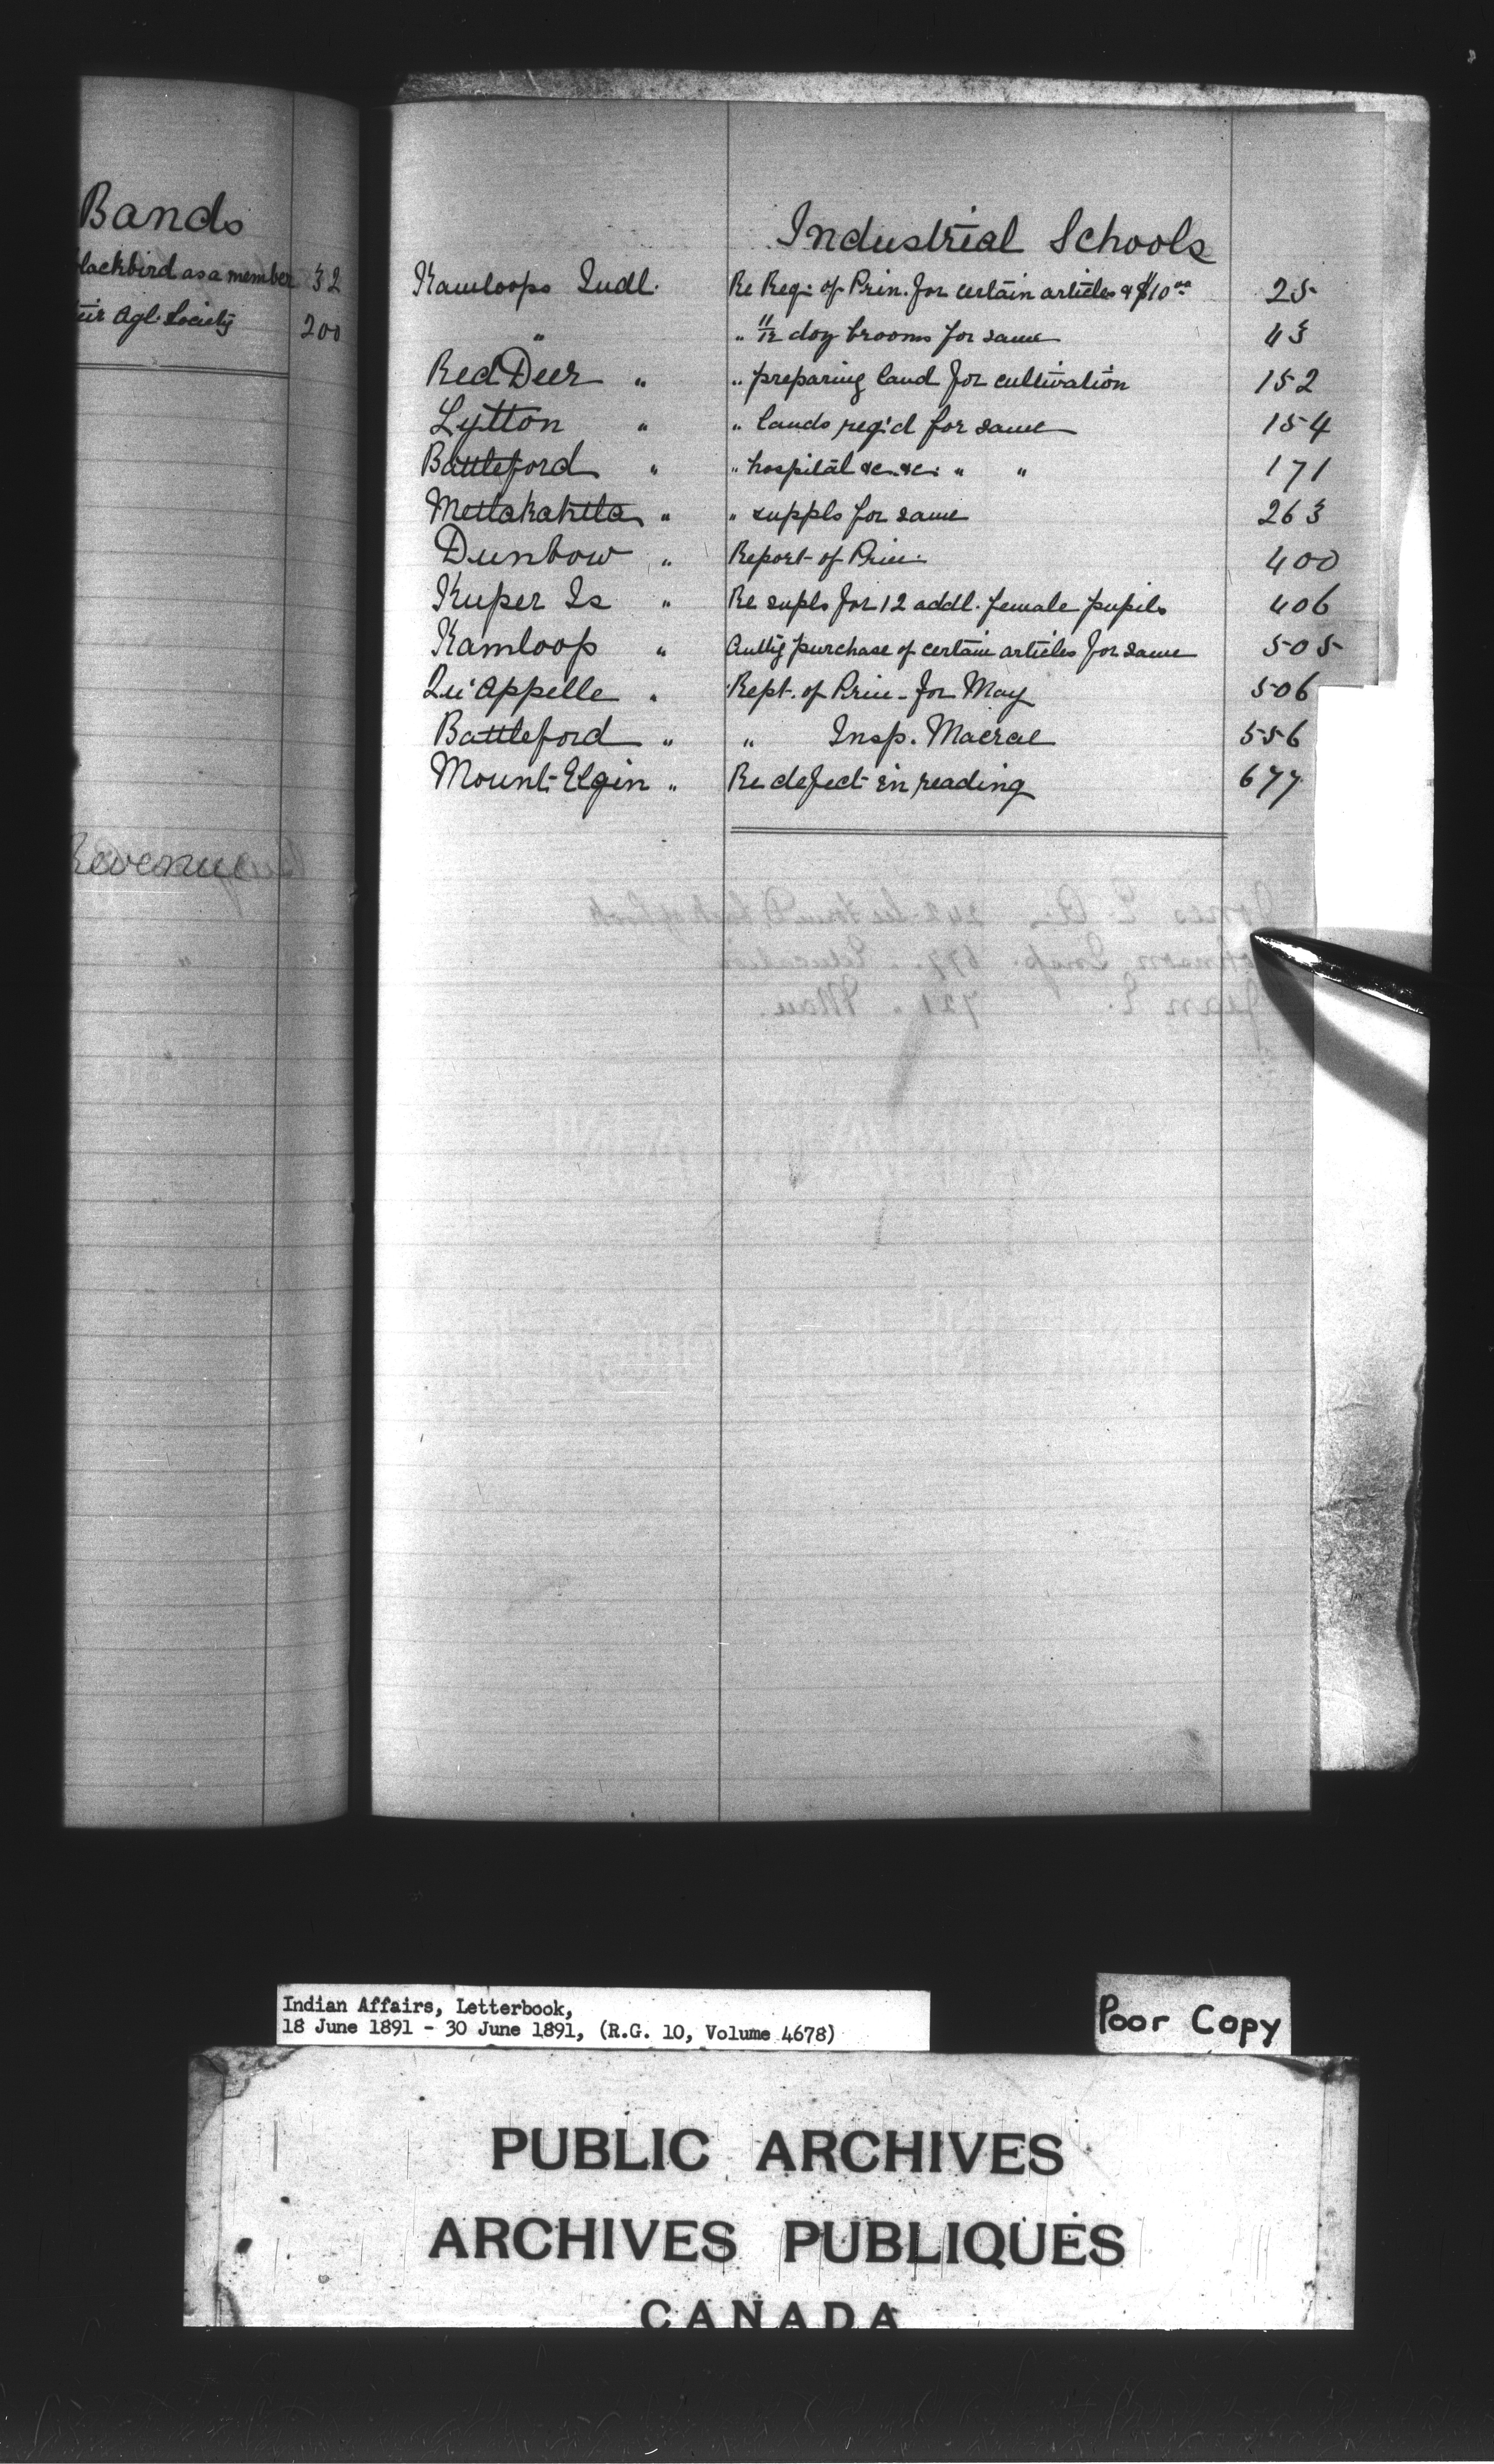 Bands
lackbird as a member 32
eir Agl. Society 200
Revenue
Industrial Schools
Kamloops Indl. Re Reqn. of Prin. for certain articles & $10.00 25
" " 11/12 doz brooms for same 43
Red Deer " " preparing land for cultivation 152
Lytton " " lands req'd for same 154
Battleford " " hospital &c. &c. " " 171
Metlakahtla " " suppls for same 263
Dunbow " Report of Prin. 400
Kuper Is " Re supls for 12 addl. female pupils 406
Kamloop " Authg purchase of certain articles for same 505
Qu'Appelle " Rept. of Prin. for May 506
Battleford " " Insp. Macrae 556
Mount Elgin " Re defect in reading 677
Indian Affairs, Letterbook,
18 June 1891 - 30 June 1891, (R.G. 10, Volume 4678)
Poor Copy
PUBLIC ARCHIVES
ARCHIVES PUBLIQUES
CANADA